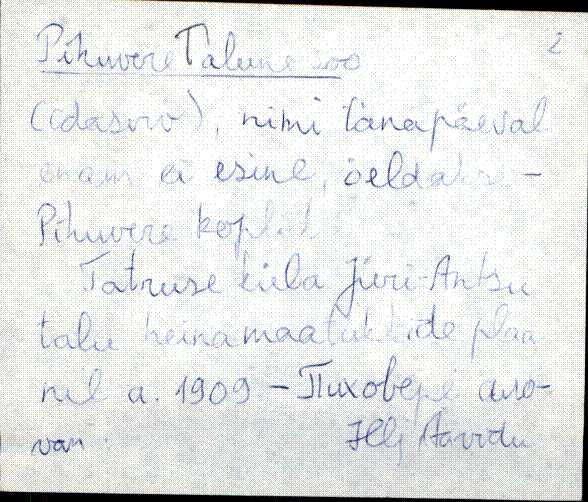 2
Pihuvere Talune soo
(Edasoo), nimi tänapäeval
enam ei esine, öeldakse –
Pihuvere koplid
Tatruse küla Jüri-Antsu
talu heinamaatükkide plaa
nil a. 1909 – Пиховере ало-
вай.
Hlj Aavidu